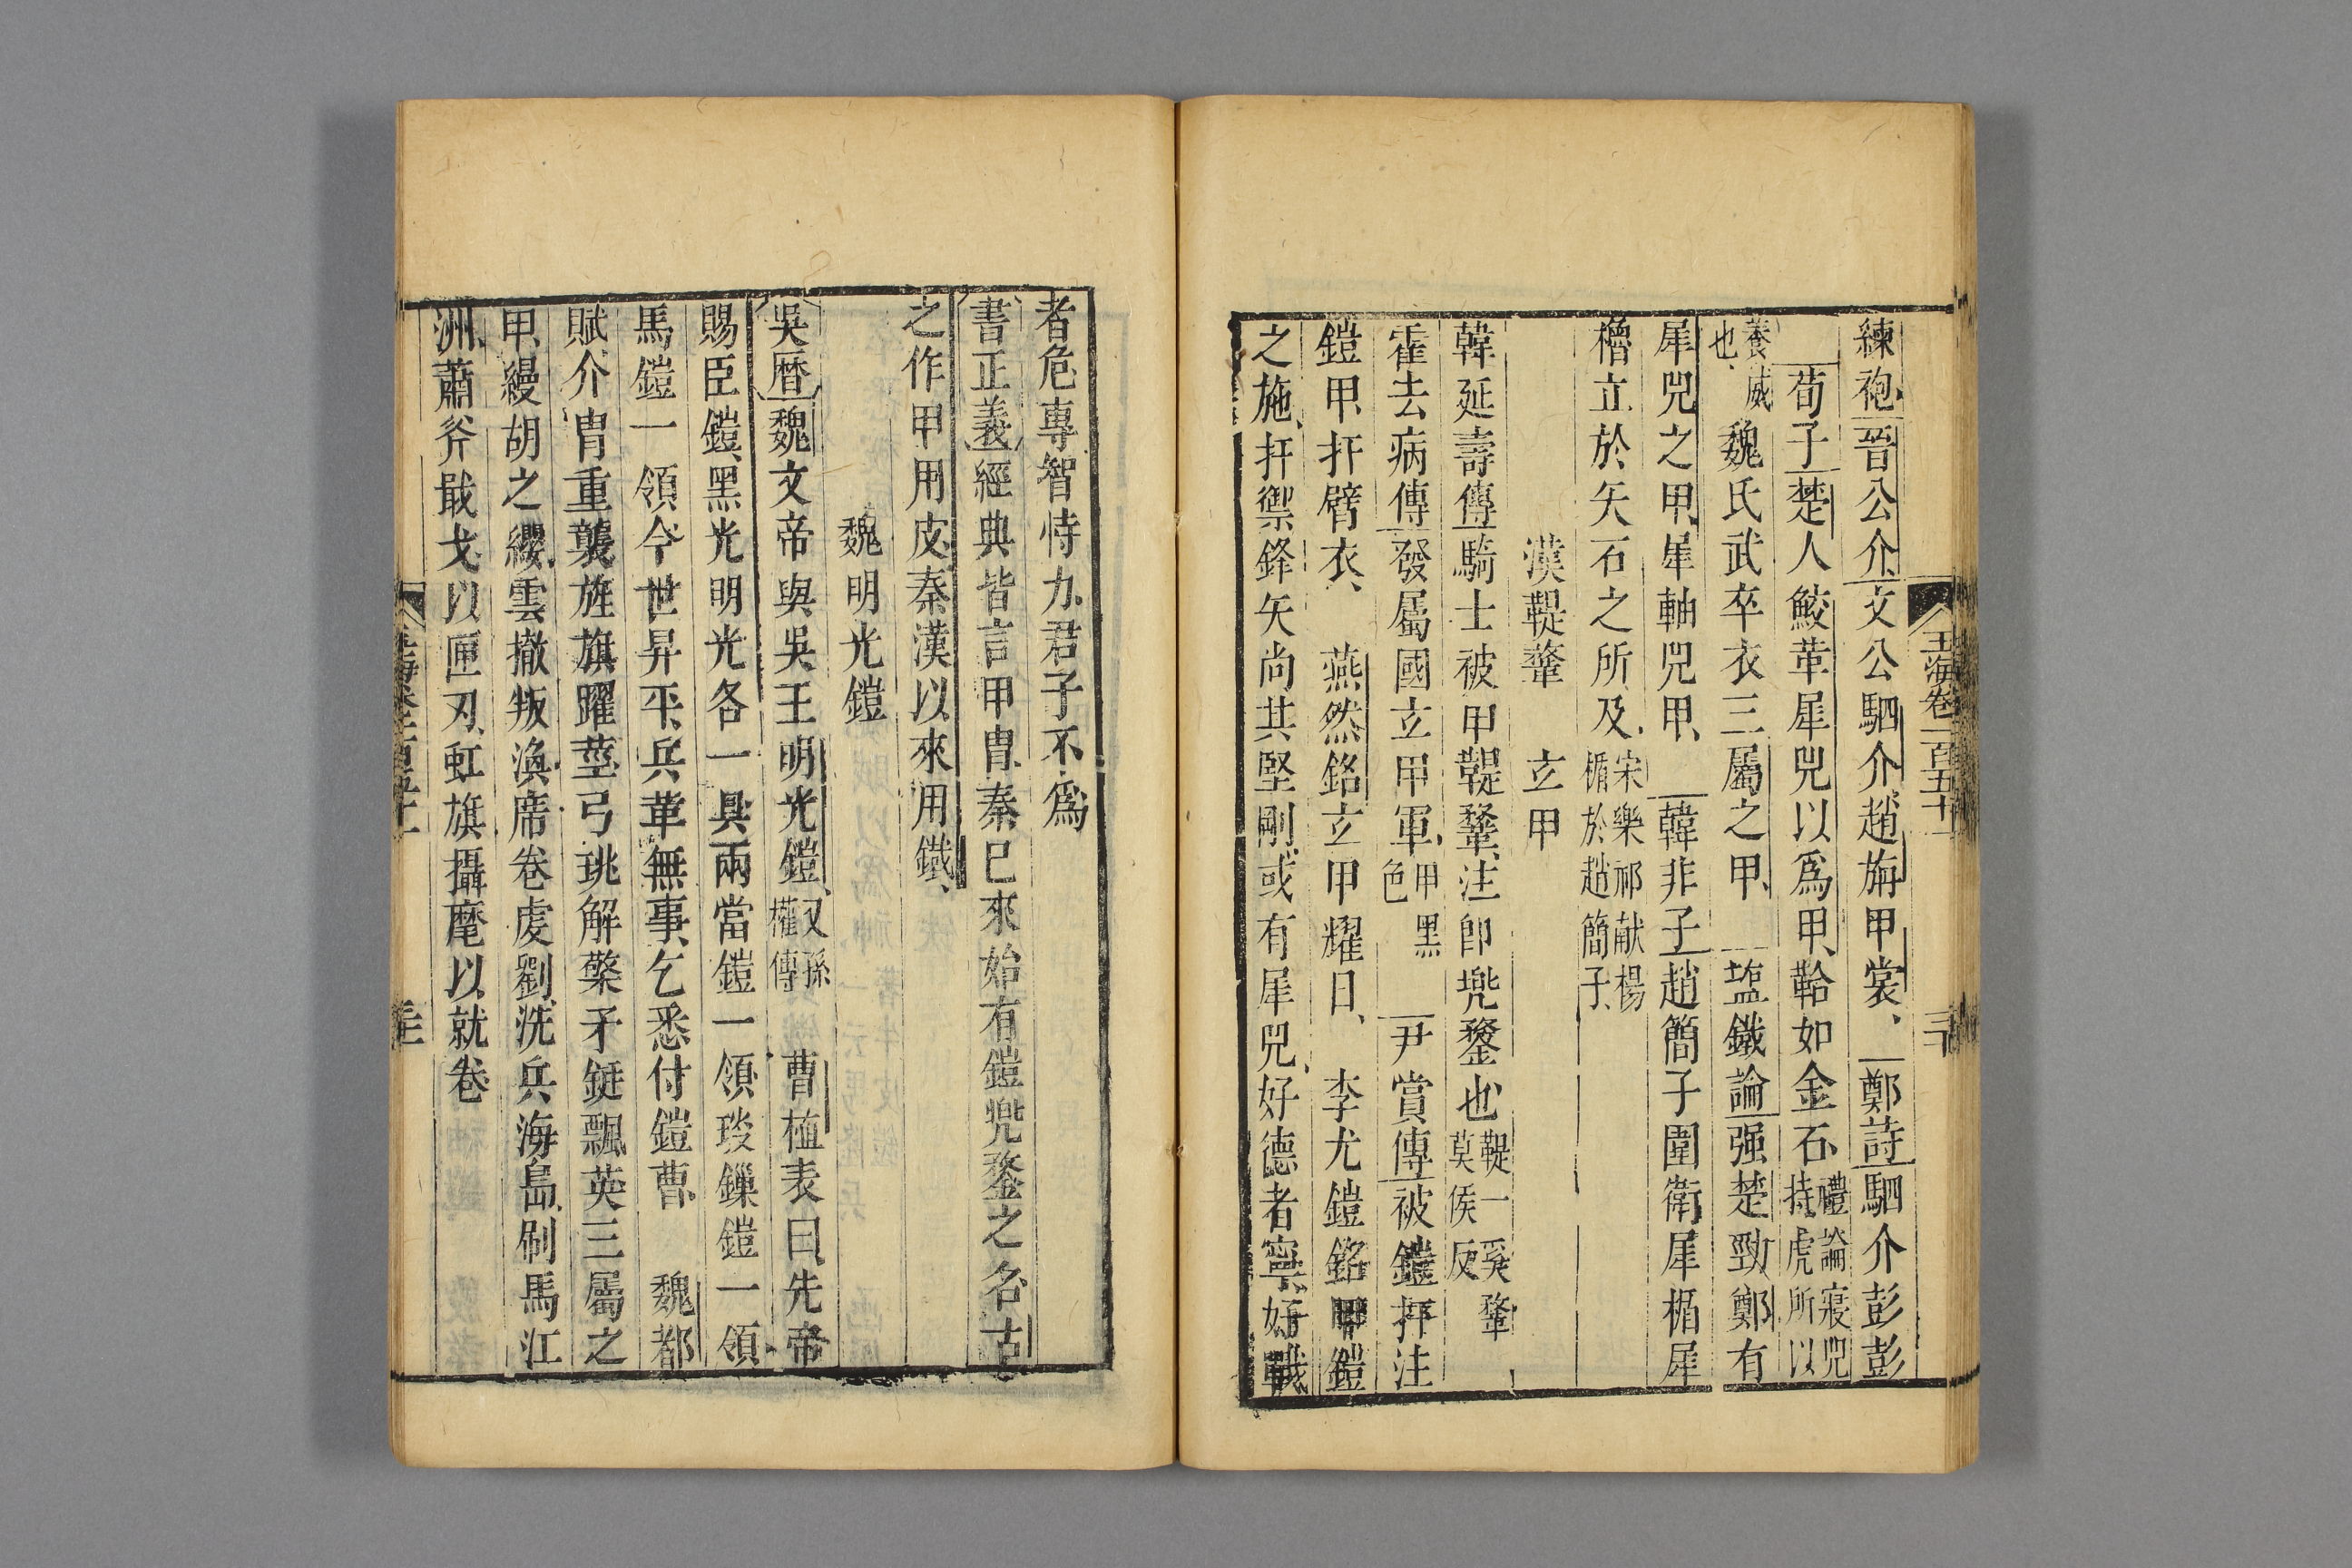 玉海卷一百五十一
三十
練袍晉公介文公駟介趙旃甲裳鄭詩駟介彭彭
荀子楚人鮫革犀兕以爲甲鞈如金石禮論寢兕持虎所以
養威也魏氏武卒衣三屬之甲塩鐵論强楚勁鄭有
犀兕之甲犀軸兕甲韓非子趙簡子圍衛犀楯犀
櫓立於矢石之所及宋樂祁献楊楯於趙簡子
漢鞮鞪 玄甲
韓延壽傳騎士被甲鞮鞪注即兠鍪也鞮一奚鞪莫侯反
霍去病傳發屬國玄甲軍甲黑色尹賞傳被鎧扞注
鎧甲扞臂衣燕然銘玄甲耀日李尤鎧銘甲鎧
之施扞禦鋒矢尚其堅剛或有犀兕好德者寧好戰
者危專智恃力君子不爲
書正義經典皆言甲胄秦已來始有鎧兠鍪之名古
之作甲用皮秦漢以來用鐵
魏明光鎧
吳曆魏文帝與吳王明光鎧又孫權傳曹植表曰先帝
賜臣鎧黑光明光各一具兩當鎧一領琰鏁鎧一領
馬鎧一領今世昇平兵革無事乞悉付鎧曹魏都
賦介胄重襲旌旗躍莖弓珧解檠矛鋋飄英三屬之
甲縵胡之纓雲撤叛渙席卷虔劉洗兵海島刷馬江
洲蕭斧戢戈以匣刃虹旗攝麾以就卷